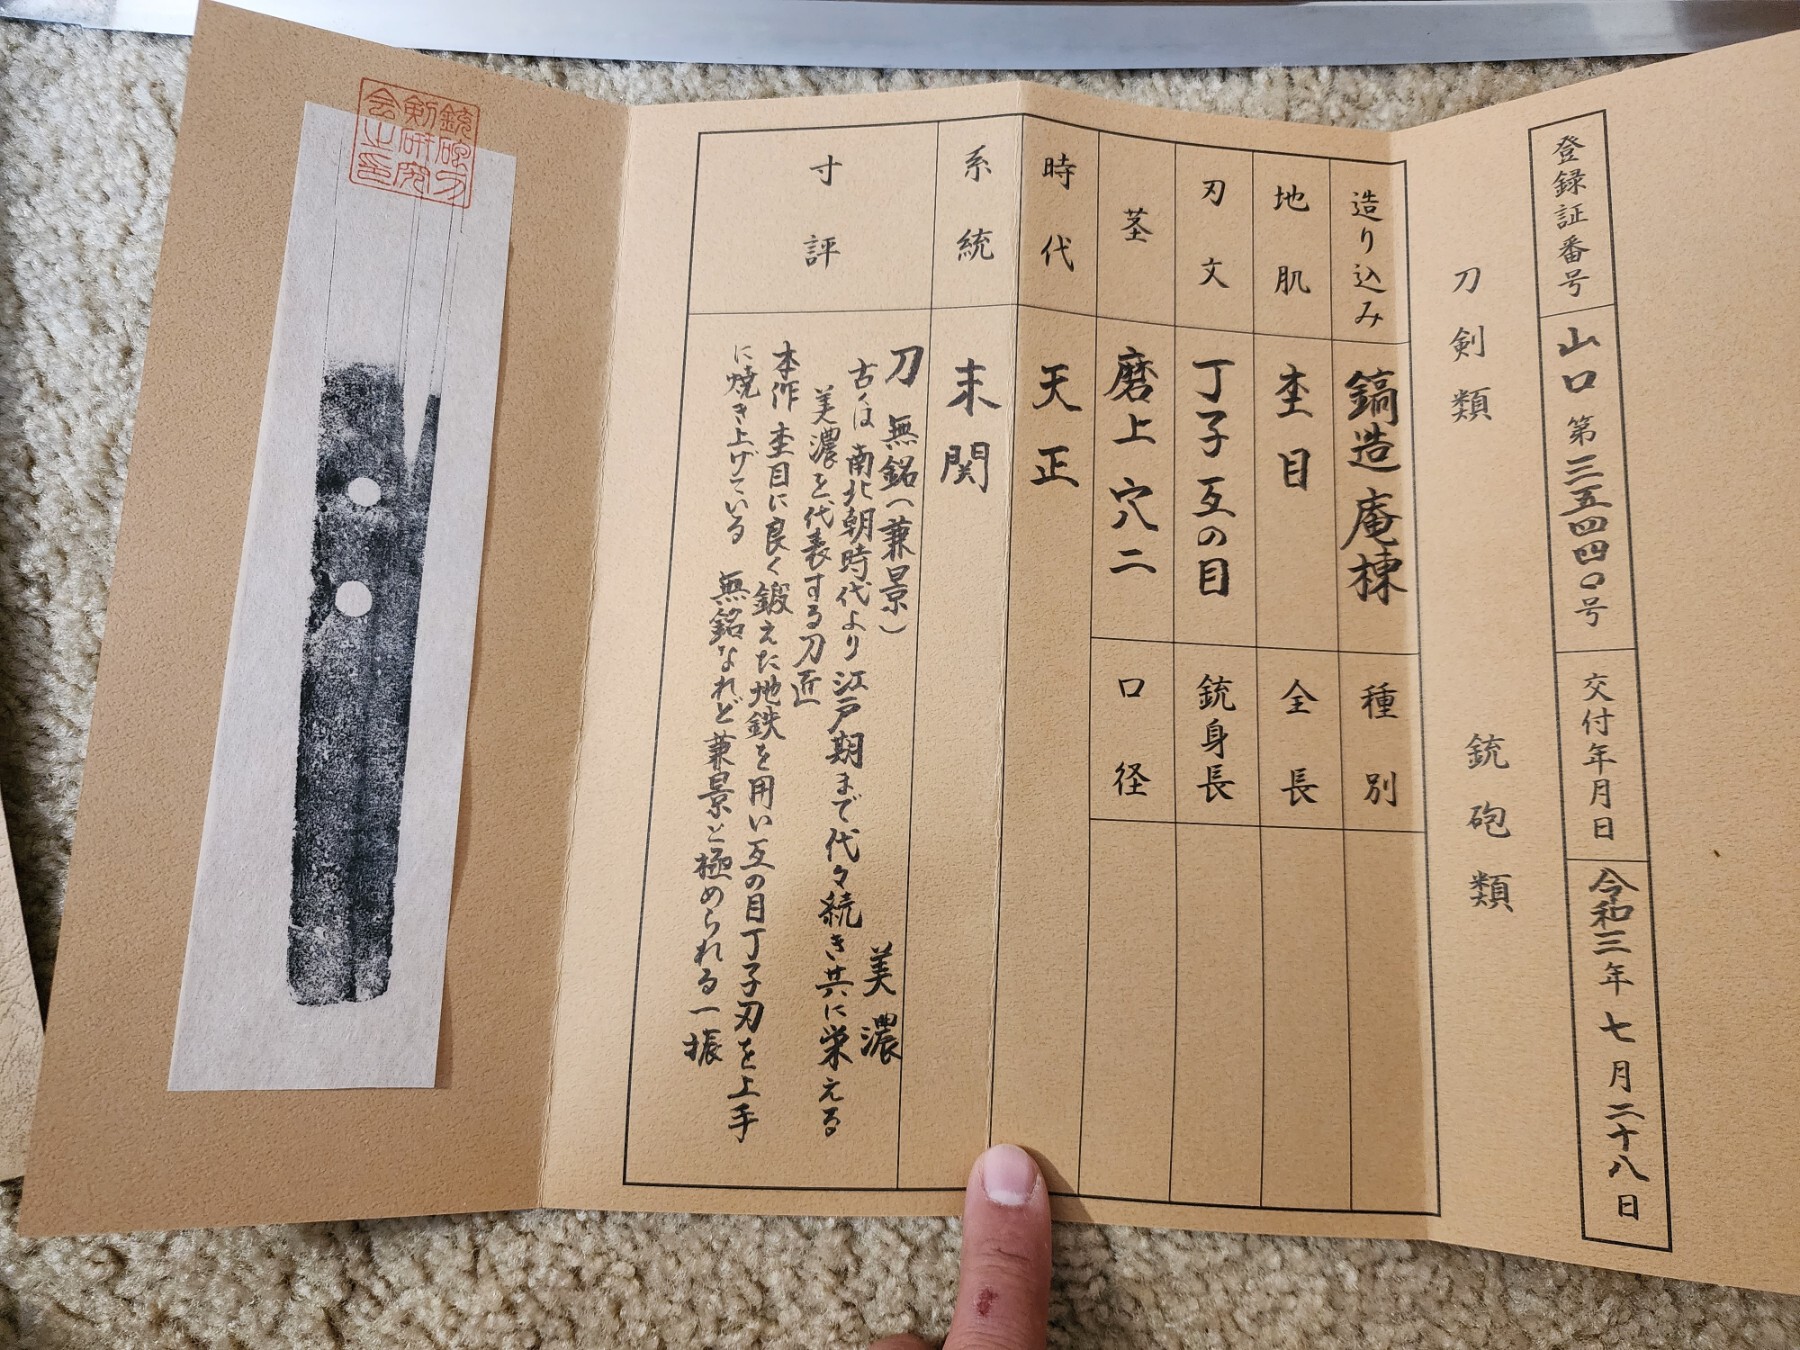 登録証番号 山口 第三五四四〇号 交付年月日 令和三年七月二十八日
刀剣類 銃砲類
造り込み 鎬造 庵棟 種別
地肌 杢目 全長
刃文 丁子 互の目 銃身長
茎 磨上 穴二 口径
時代 天正
系統 末関
寸評
刀 無銘(兼景) 美濃
古くは南北朝時代より江戸期まで代々続き共に栄える
美濃を代表する刀匠
本作 杢目に良く鍛えた地鉄を用い互の目丁子刃を上手
に焼き上げている 無銘なれど兼景と極められる一振
銃砲刀
剣研究
会之印